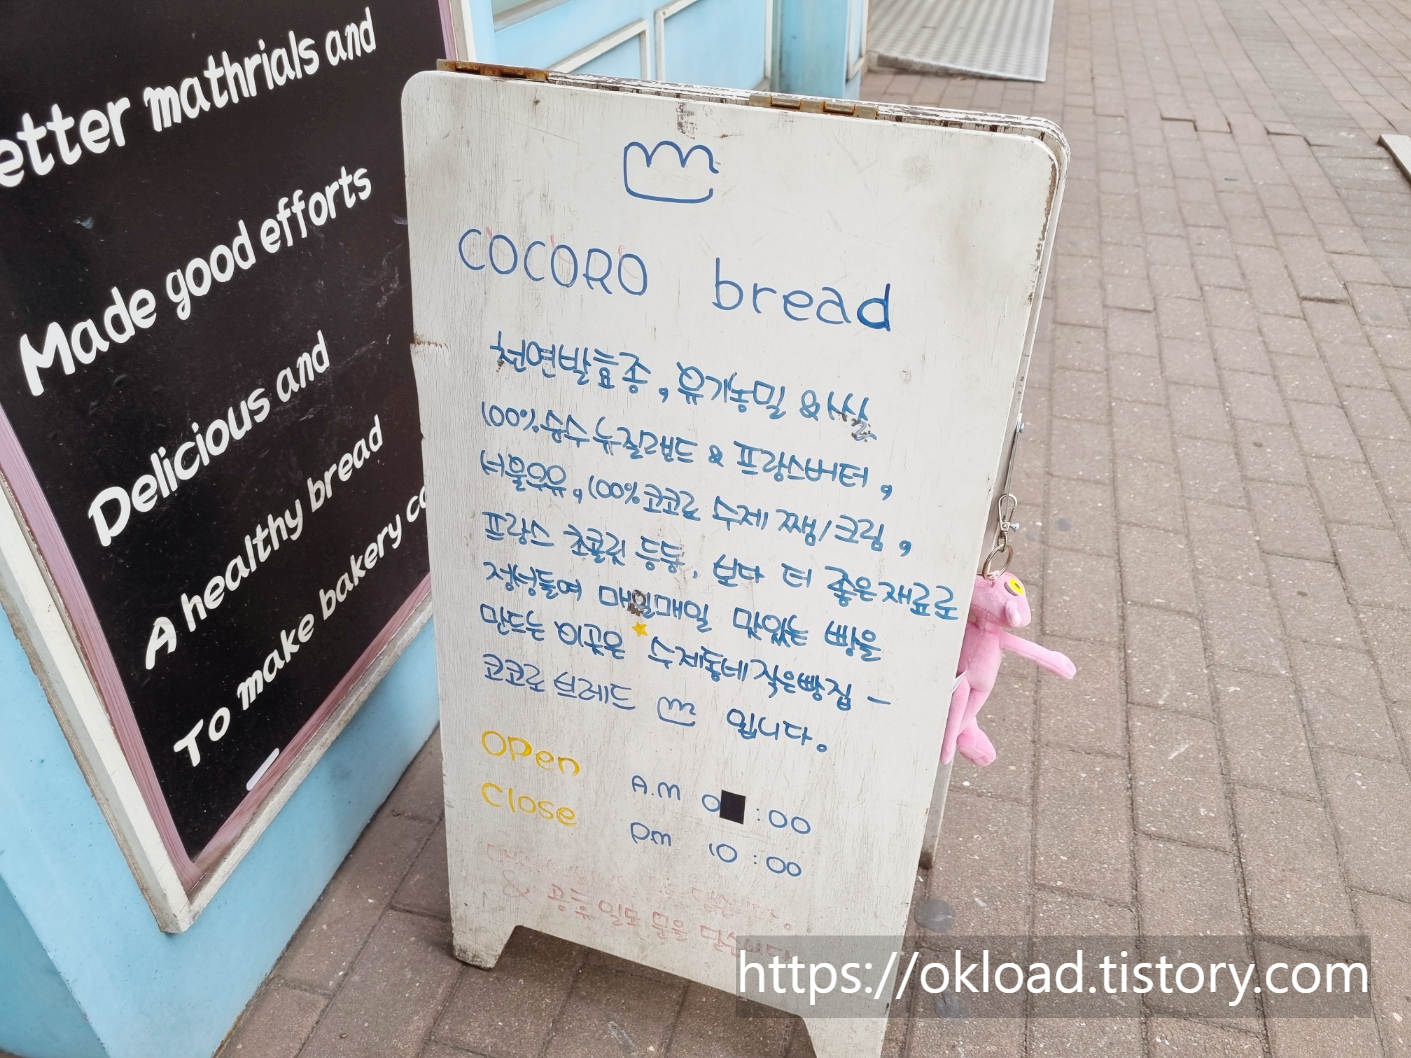 etter mathrials and
Made good efforts
Delicious and
A healthy bread
To make bakery co
COCORO bread
천연발효종, 유기농밀 &
100% 뉴질랜드 & 프랑스버터,
서울우유, 100% 코코로 수제 쨈/크림,
프랑스 초콜릿 등등, 보다 더 좋은재료로
정성들여 매일매일 맛있는 빵을
만드는 이곳은 수제동네작은빵집 -
코코로 브레드 입니다.
OPen A.M 0 :00
Close Pm 10:00
& 공휴일도 문을
https://okload.tistory.com